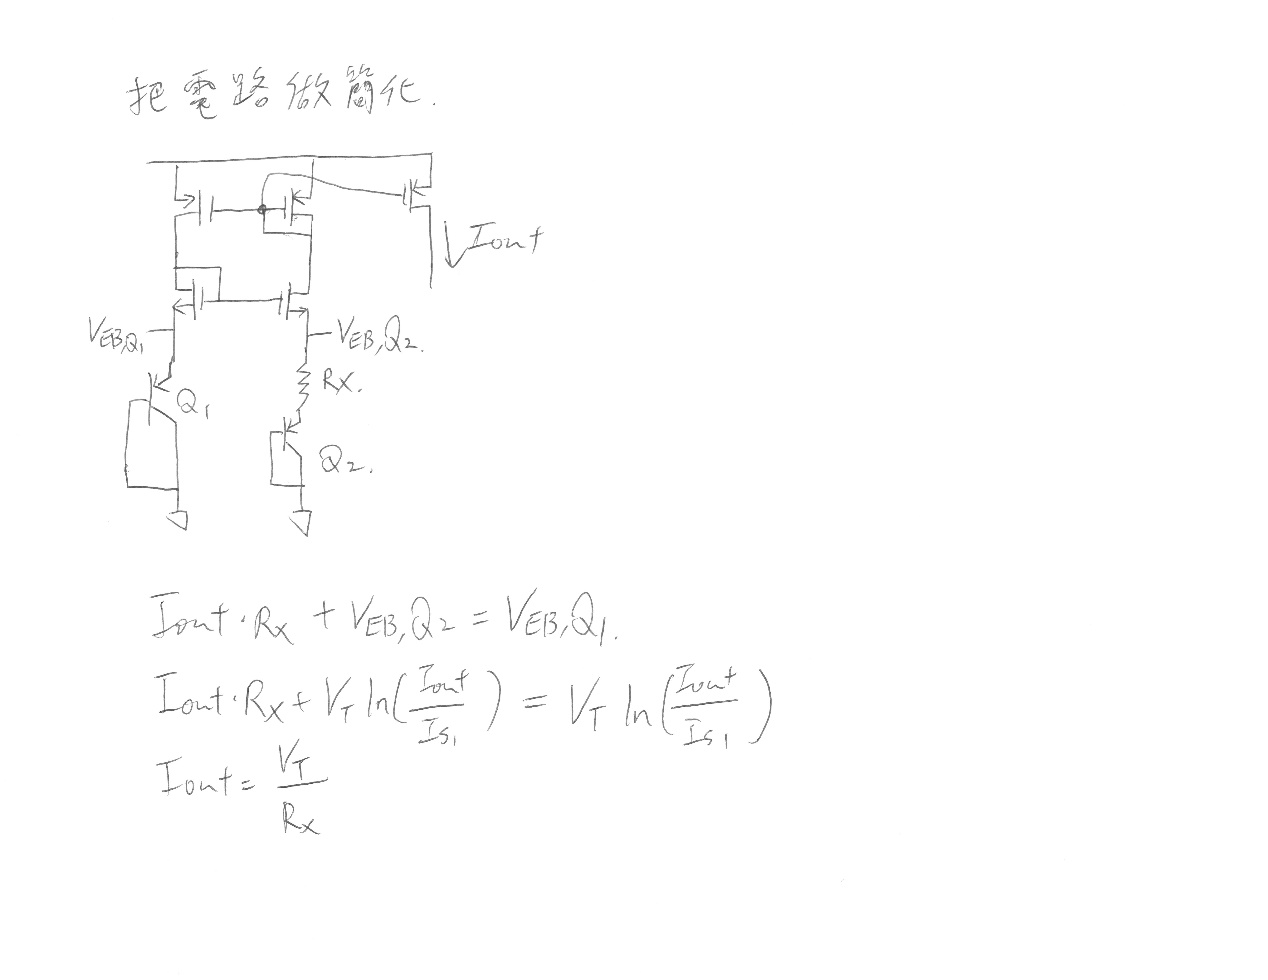 把電路做簡化.
Iout
VEB,Q1
VEB,Q2.
RX.
Q1
Q2.
Iout·Rx + VEB,Q2 = VEB,Q1.
Iout·Rx + VT ln(Iout/Is1) = VT ln(Iout/Is1)
Iout = VT/Rx